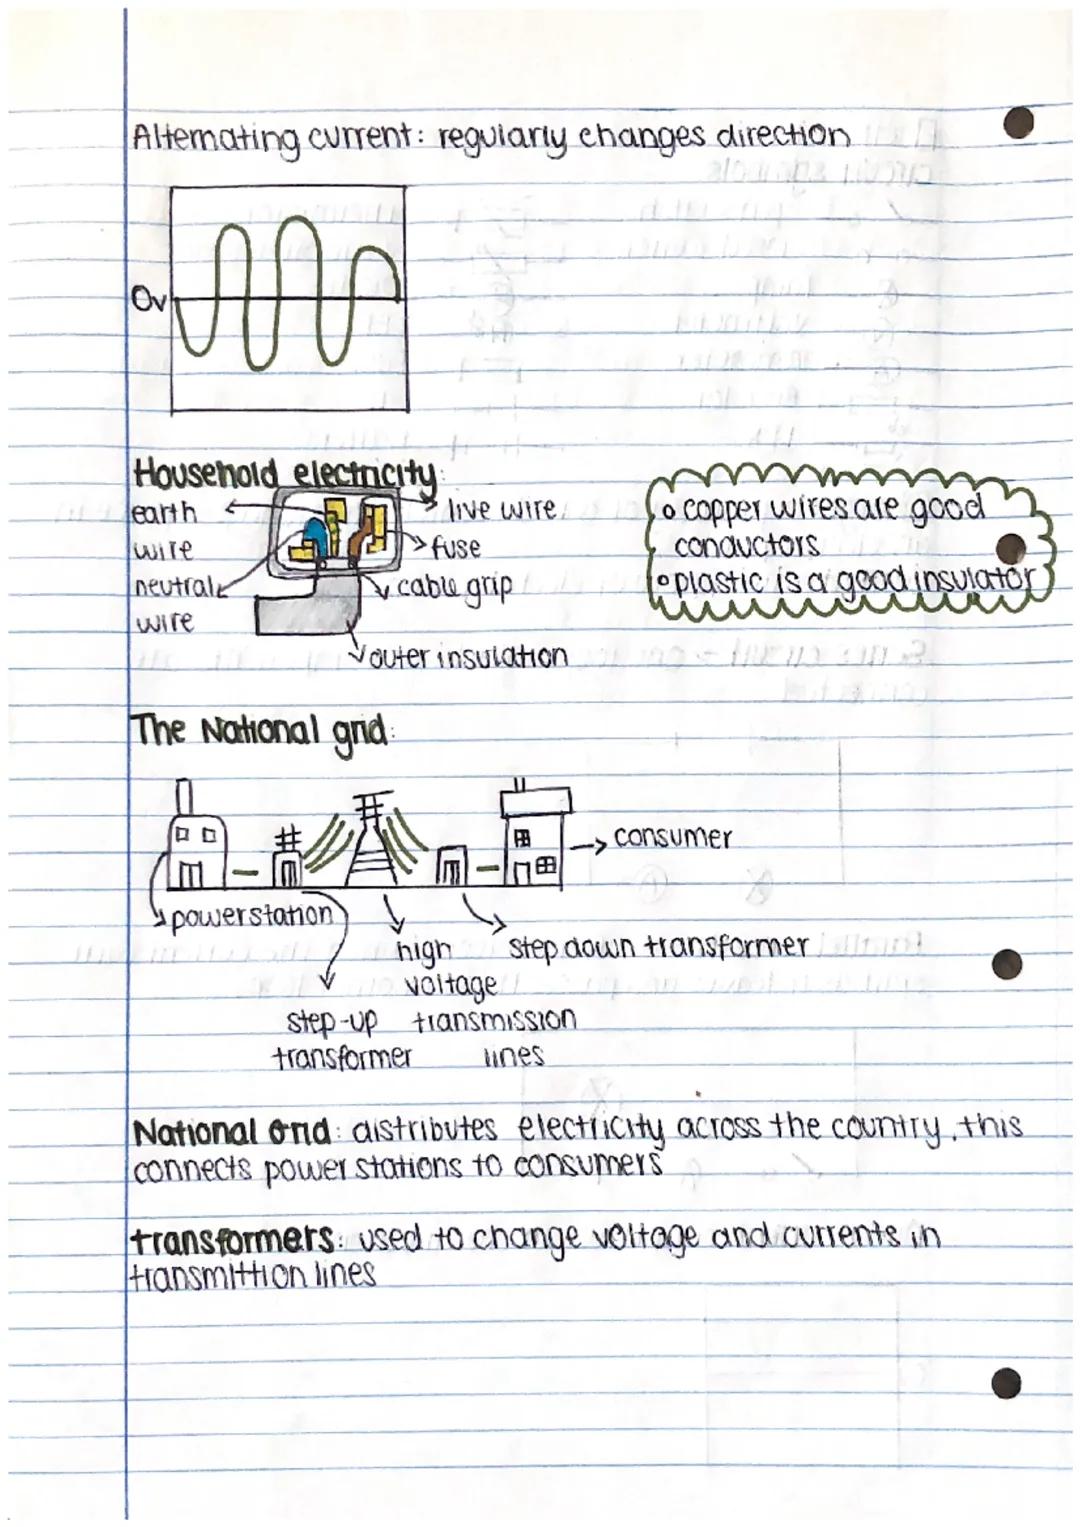 Alternating current: regularly changes direction
0v
Household electricity:
earth
wire
neutral
wire
live wire
fuse
cable grip
outer insulation
copper wires are good
conductors
plastic is a good insulator
The National grid:
consumer
powerstation
high
voltage
transmission
lines
step down transformer
step-up
transformer
National Grid: distributes electricity across the country, this
connects power stations to consumers
transformers: used to change voltage and currents in
transmittion lines